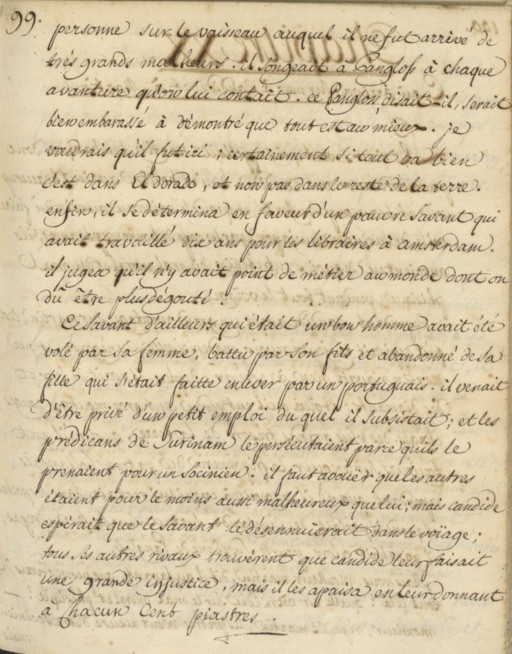 99.
personne sur le vaisseau auquel il ne fut arrivé de
très grands malheurs. il songeait à Panglofs à chaque
avanture qu'on lui contait. ce Panglofs, disait-il, serait
bien embarassé à démontré que tout est au mieux. je
voudrais qu'il fut ici; certainement si tout va bien
c'est dans El dorado, et non pas dans le reste de la terre.
enfin, il se détermina en faveur d'un pauvre savant qui
avait travaillé dix ans pour les libraires à amsterdam.
il jugea qu'il n'y avait point de métier au monde dont on
dû être plus dégouté.
Ce savant d'ailleurs qui était un bon homme avait été
volé par sa femme, battu par son fils et abandonné de sa
fille qui s'était faitte enlever par un portuguais. il venait
d'être privé d'un petit emploi du quel il subsistait; et les
prédicans de Surinam le persécutaient parce qu'ils le
prenaient pour un socinien. il faut avouër que les autres
étaient pour le moins aussi malheureux que lui; mais candide
espérait que le savant le désennuierait dans le voïage;
tous ses autres rivaux trouvèrent que candide leur faisait
une grande injustice, mais il les apaisa en leur donnant
a chacun cent piastres.